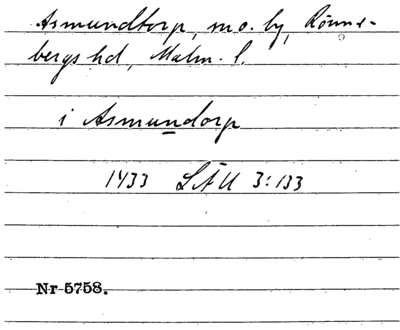 Asmundtorp, sn o. by, Rönne-
bergs hd, Malm. l.
i Asmundorp
1433 LÄU 3:133
Nr 5758.